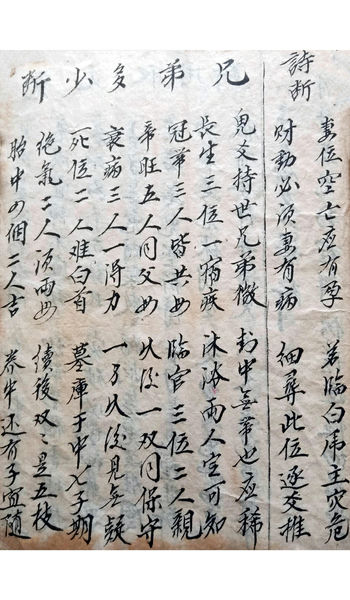 詩断
妻位空亡应有孕 若临白虎主灾危
财動必須妻有病 細尋此位逐爻推
兄弟多少断
鬼爻持世兄弟微 卦中無弟也应稀
長生三位一宿疾 沐浴兩人定可知
冠帶三人皆共母 臨官三位二人親
帝旺五人同父母 以後一双同保守
衰病三人一得力 一子以後見無疑
死位二人难白首 墓庫于中七子期
绝氣二人須兩母 續後双々是五枝
胎中四個二人吉 养中还有子宜随